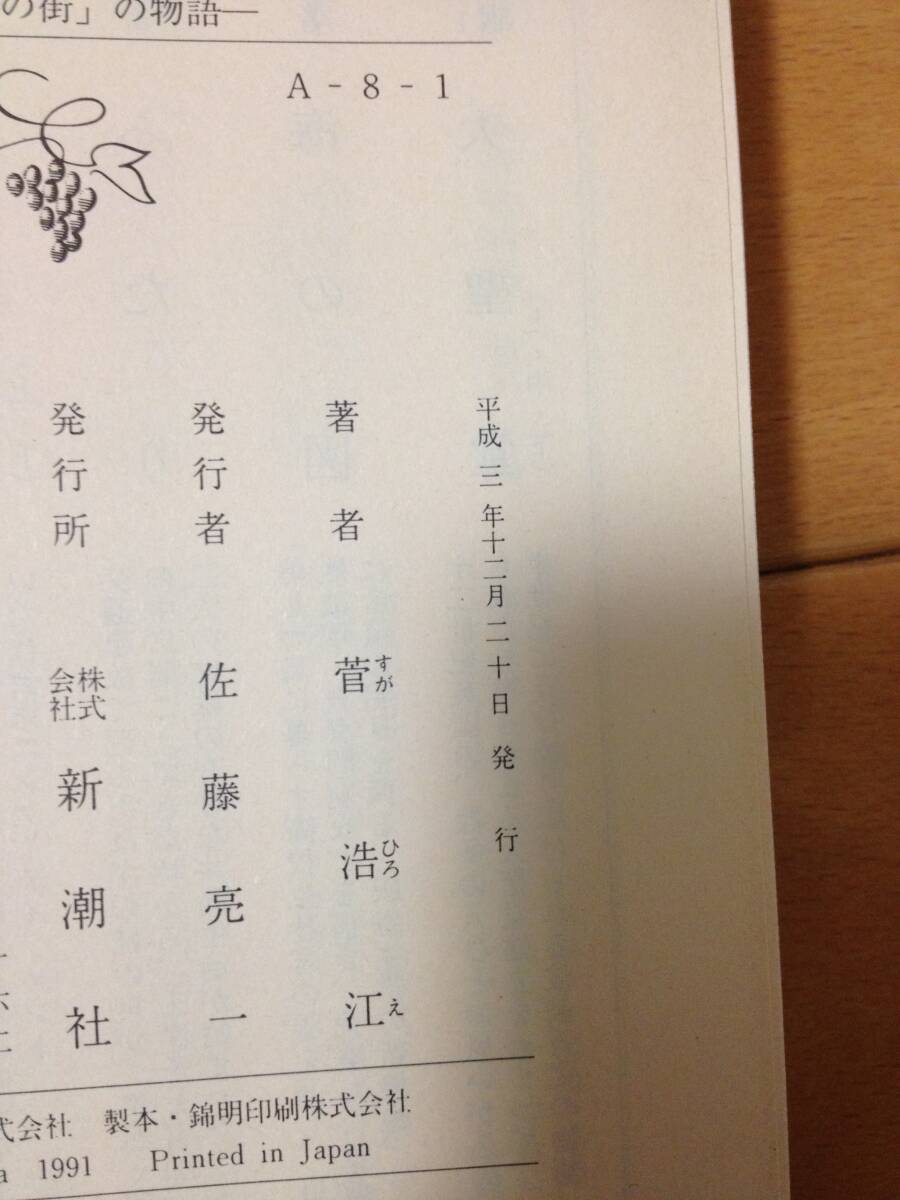 の街」の物語―
A-8-1
平成三年十二月二十日 発行
著者 菅浩江
すが ひろ え
発行者 佐藤亮一
発行所 株式会社 新潮社
式会社 製本・錦明印刷株式会社
a 1991 Printed in Japan